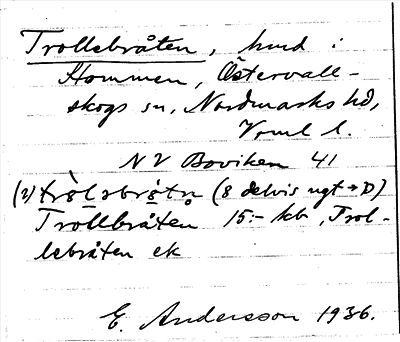 Trollebråten, hmd i
Hommen, Östervall-
skogs sn, Nordmarks hd,
Vrml l.
NV Boviken 41
Trollbråten 15:- kb, Trol-
lebråten ek
E. Andersson 1936.